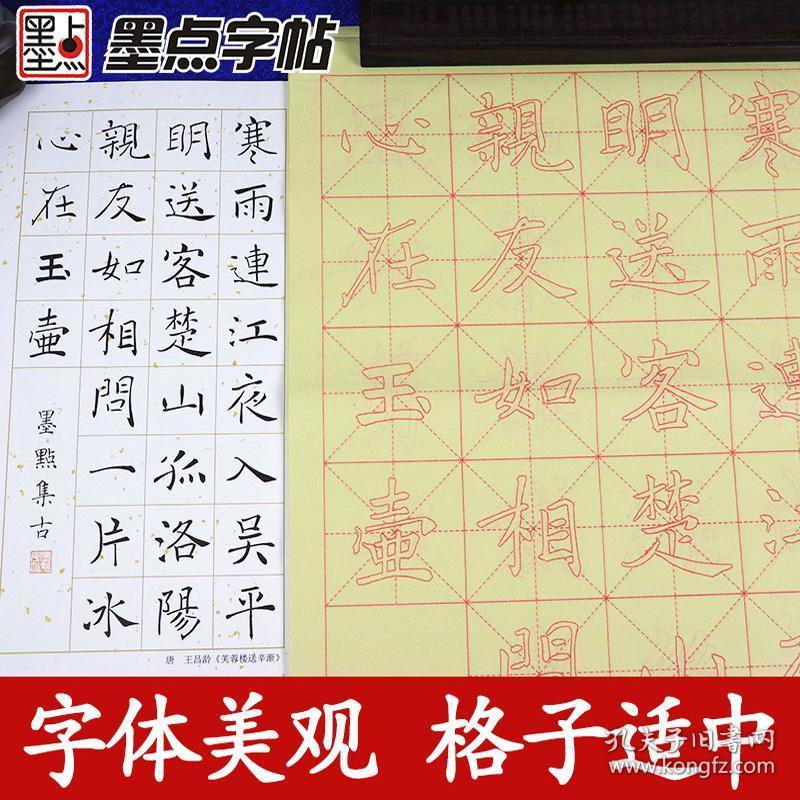 墨点
墨点字帖
寒雨連江夜入吴平
明送客楚山孤洛陽
親友如相問一片冰
心在玉壷
墨點集古
唐 王昌龄《芙蓉楼送辛渐》
寒雨連江
明送客楚山
親友如相問
心在玉壷
字体美观 格子适中
孔夫子旧书网
www.kongfz.com